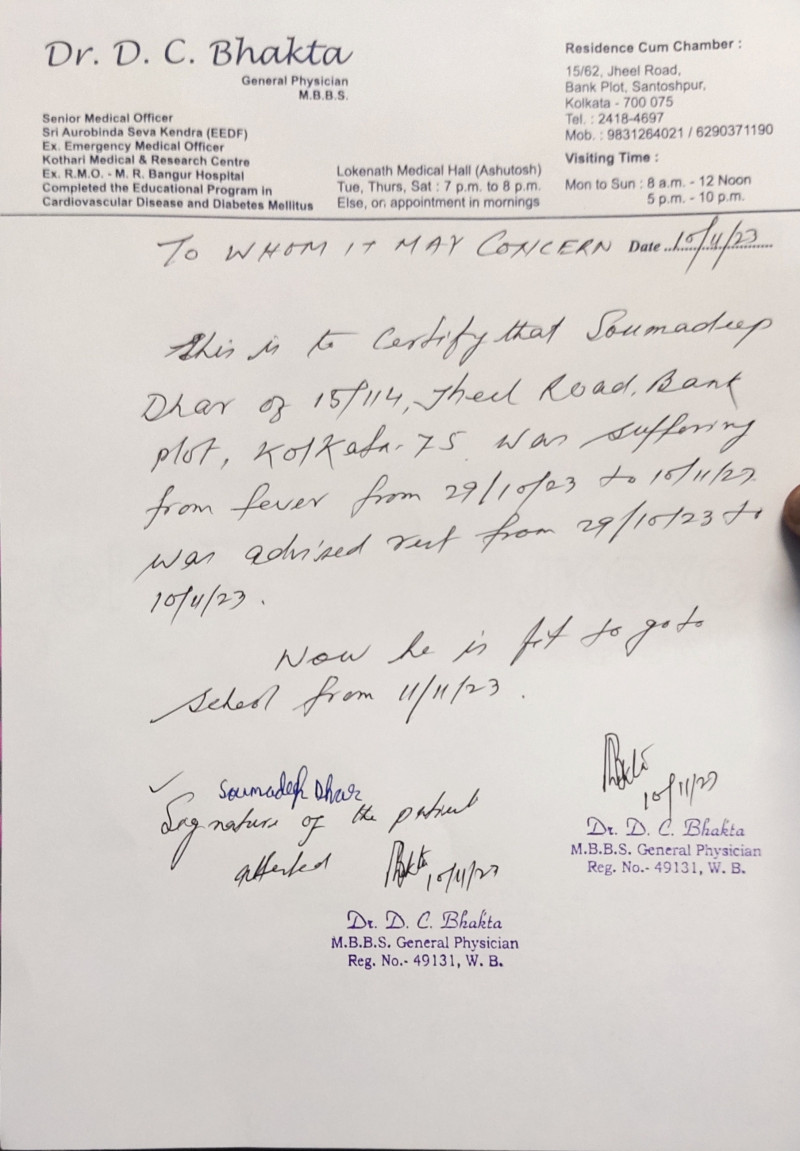 Dr. D. C. Bhakta
General Physician
M.B.B.S.
Senior Medical Officer
Sri Aurobinda Seva Kendra (EEDF)
Ex. Emergency Medical Officer
Kothari Medical & Research Centre
Ex. R.M.O. - M. R. Bangur Hospital
Completed the Educational Program in
Cardiovascular Disease and Diabetes Mellitus
Lokenath Medical Hall (Ashutosh)
Tue, Thurs, Sat : 7 p.m. to 8 p.m.
Else, on appointment in mornings
Residence Cum Chamber :
15/62, Jheel Road,
Bank Plot, Santoshpur,
Kolkata - 700 075
Tel. : 2418-4697
Mob. : 9831264021 / 6290371190
Visiting Time :
Mon to Sun : 8 a.m. - 12 Noon
5 p.m. - 10 p.m.
TO WHOM IT MAY CONCERN Date 10/11/23
This is to certify that Soumadeep
Dhar of 15/114, Jheel Road, Bank
plot, Kolkata-75 was suffering
from fever from 29/10/23 to 10/11/23
was advised rest from 29/10/23 to
10/11/23.
Now he is fit to go to
school from 11/11/23.
Soumadeep Dhar
Signature of the patient
attested Bhakta 10/11/23
Dr. D. C. Bhakta
M.B.B.S. General Physician
Reg. No.- 49131, W. B.
Bhakta
10/11/23
Dr. D. C. Bhakta
M.B.B.S. General Physician
Reg. No.- 49131, W. B.